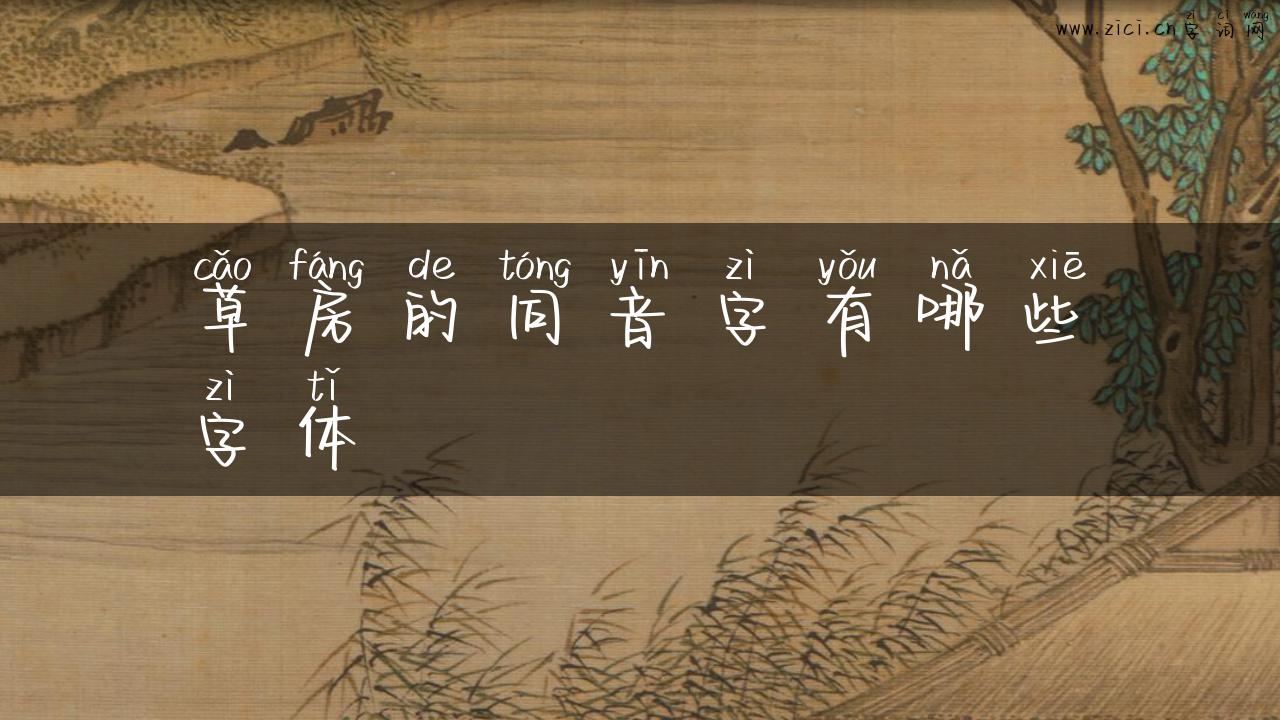 zì cí wǎng
www.zici.cn字词网
cǎo fáng de tóng yīn zì yǒu nǎ xiē
草房的同音字有哪些
zì tǐ
字体